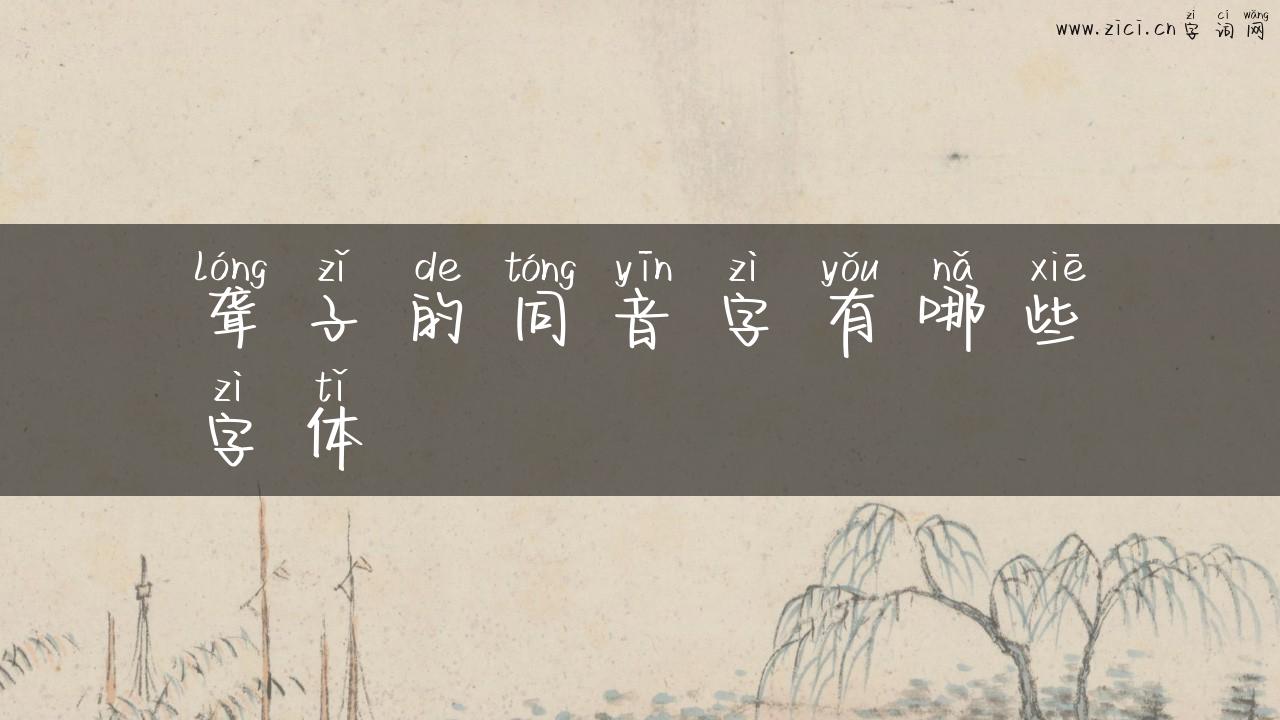 zì cí wǎng
www.zici.cn 字词网
lóng zǐ de tóng yīn zì yǒu nǎ xiē
聋子的同音字有哪些
zì tǐ
字体